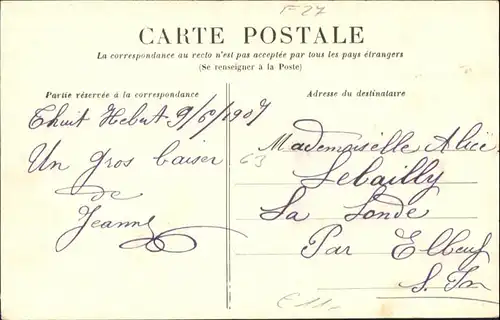 F 27
CARTE POSTALE
La correspondance au recto n'est pas acceptée par tous les pays étrangers
(Se renseigner à la Poste)
Partie réservée à la correspondance
Thuit Hebert 9/6/1907
Un gros baiser
de
Jeanne
63
Adresse du destinataire
Mademoiselle Alice
Lebailly
La Londe
Par Elbeuf
S. Inf